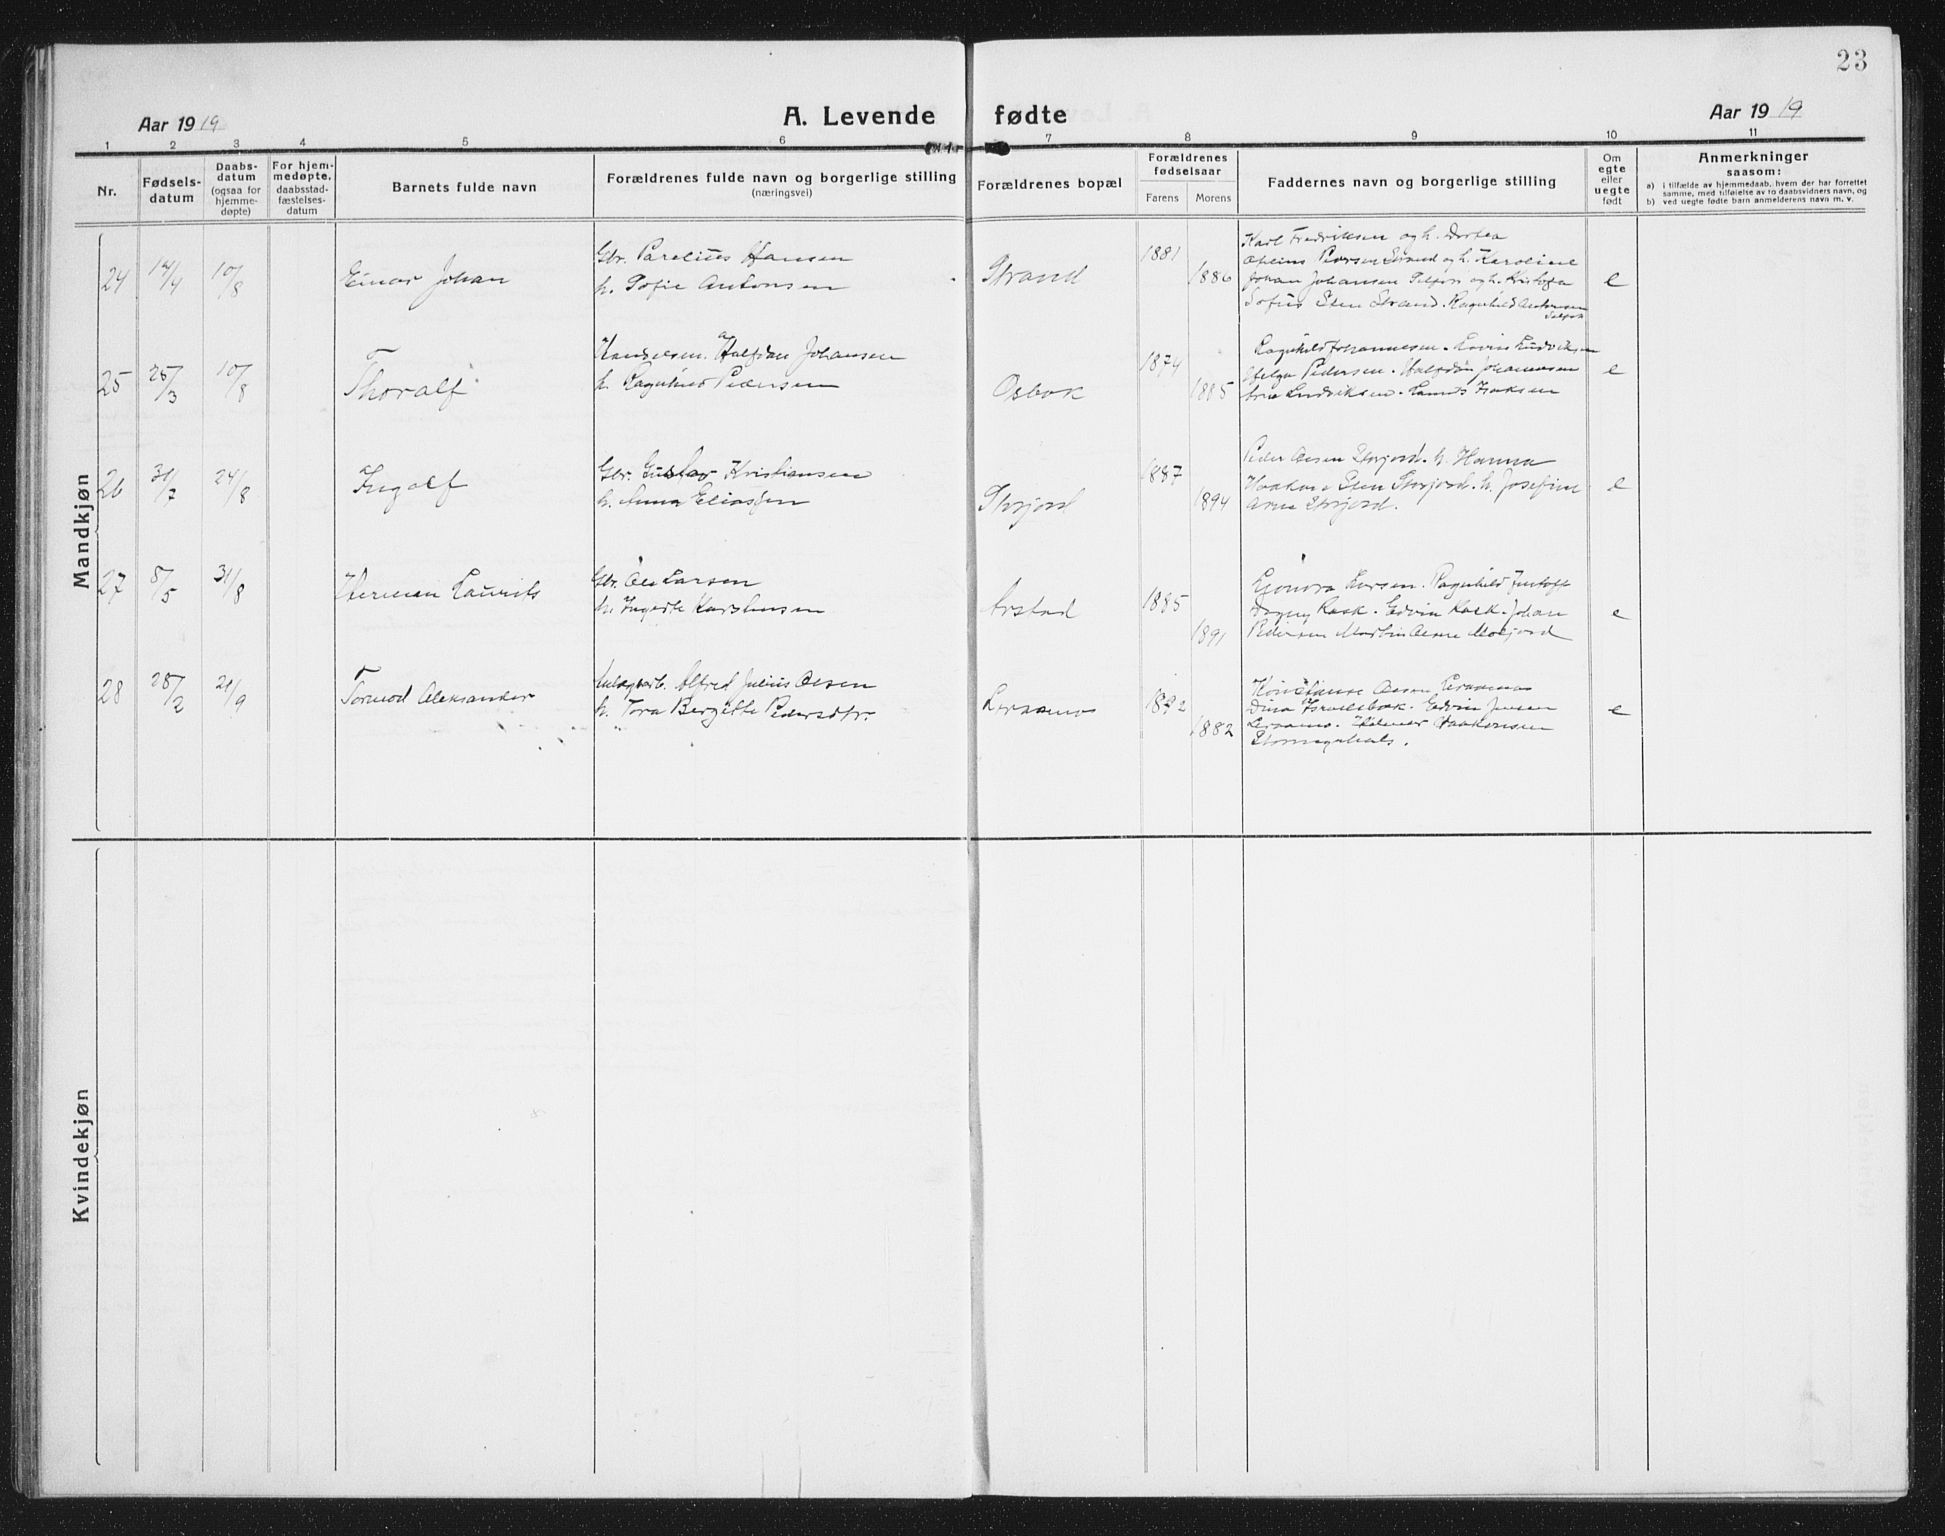 23
Aar 1919
A. Levende fødte
Aar 1919
1 2 3 4 5 6 7 8 9 10 11
Nr.
Fødsels-
datum
Daabs-
datum
(ogsaa for
hjemme-
døpte)
For hjem-
medøpte,
daabsstad-
fæstelses-
datum
Barnets fulde navn
Forældrenes fulde navn og borgerlige stilling
(næringsvei)
Forældrenes bopæl
Forældrenes
fødselsaar
Farens Morens
Faddernes navn og borgerlige stilling
Om
egte
eller
uegte
født
Anmerkninger
saasom:
a) i tilfælde av hjemmedaab, hvem der har forrettet
samme, med tilføielse av to daabsvidners navn, og
b) ved uegte fødte barn anmelderens navn m. v.
Mandkjøn
24 14/4 10/8 Einar Johan
Gbr. Parelius Hansen
h. Sofie Antonsen
Strand 1881 1886
Karl Fredriksen og h. Dortea
Strand og h. Karoline
Johan Johansen og h.
Sofus Sten Strand. Ragnhild Antonsen
e
25 25/3 10/8 Thoralf
Handelsm. Halfdan Johansen
h. Ragnhild Pedersen
Osbak 1874 1885
Ragnhild Johannesen. Ludviksen
Helga Pedersen. Halfdan Johannesen
Ludviksen.
e
26 31/7 24/8 Ingolf
Gbr. Gustav Kristiansen
h. Anna Eliassen
Storjord 1887 1894
Peder Olsen Storjord. h. Hanna
Haakon Sten Storjord. h. Josefine
Arne Storjord.
e
27 5/5 31/8 Herman Laurits
Gbr. Ole Larsen
h. Karstensen
Arstad 1885 1891
Larsen. Ragnhild
Dagny Rask. Edvin Rask. Johan
Pedersen Martin Olsen Moljord
e
28 28/2 21/9 Tormod Aleksander
Alfred Julius Olsen
h. Tora Bergitte Pedersdtr.
Leraamo 1882
Konstanse Olsen Leraamo
Dina Edvin Jensen
Leraamo. Hilmar Haakonsen
e
Kvindekjøn